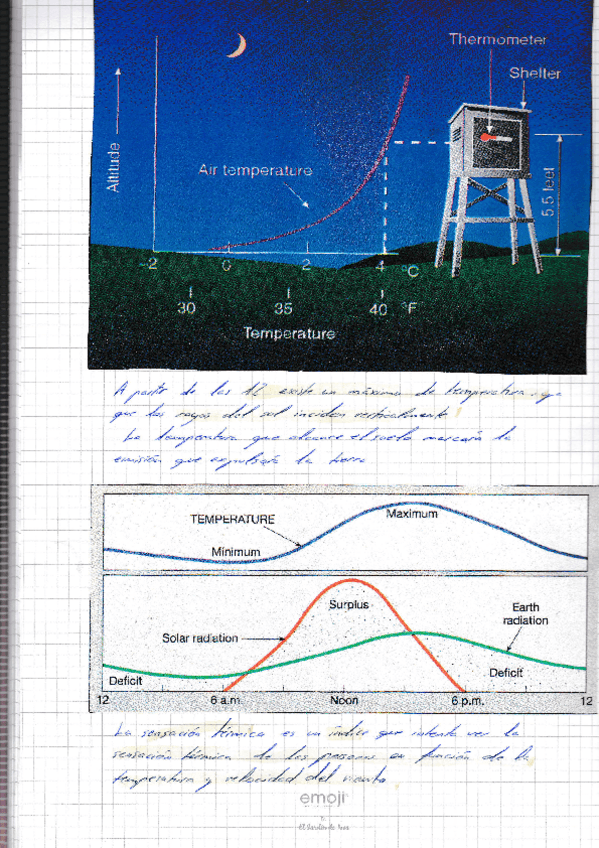 Thermometer
Shelter
Altitude
Air temperature
5.5 feet
-2 0 2 4 °C
30 35 40 °F
Temperature
A partir de las 12 existe un máximo de temperatura
que los rayos del sol inciden verticalmente
La temperatura que alcance el suelo marcará la
emisión que expulsará la tierra
TEMPERATURE
Maximum
Minimum
Surplus
Earth
radiation
Solar radiation
Deficit
Deficit
12 6 a.m. Noon 6 p.m. 12
La sensación térmica es un índice que intenta ver la
sensación térmica de las personas en función de la
temperatura y velocidad del viento
emoji
El Jardín de